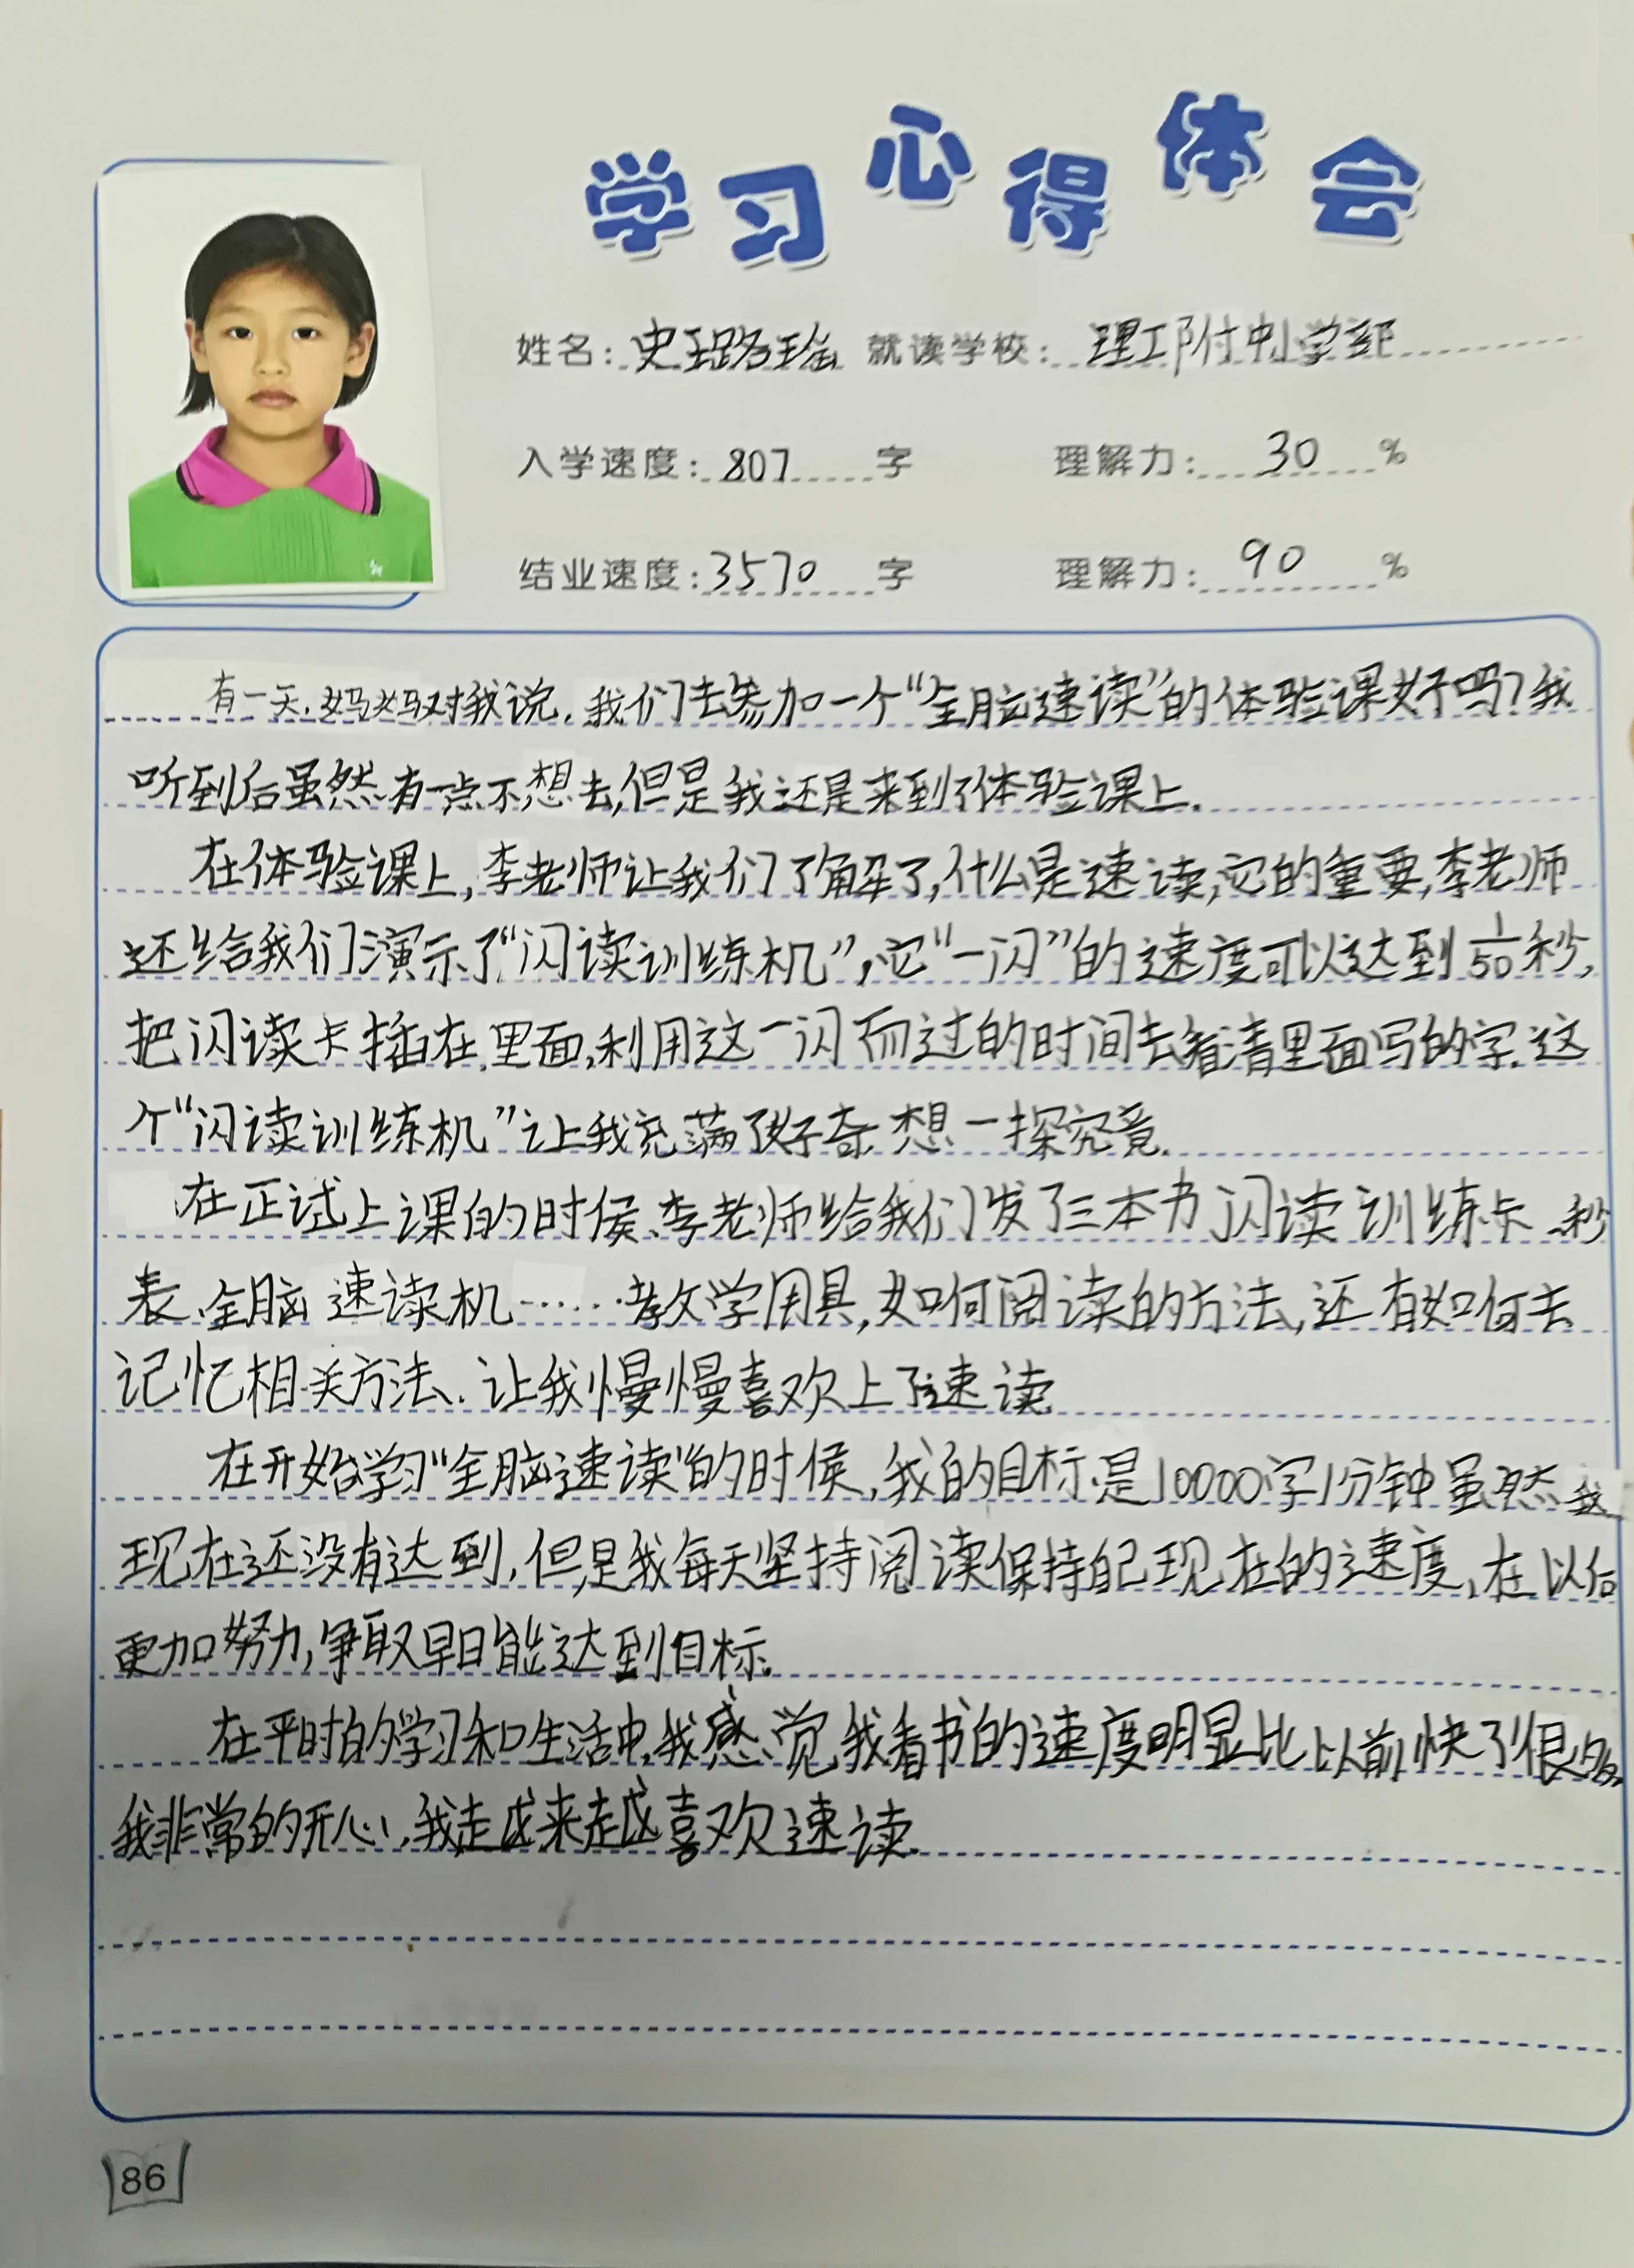 学习心得体会
姓名：史璐瑶 就读学校：理工附中小学部
入学速度：807 字 理解力：30 %
结业速度：3570 字 理解力：90 %
有一天，妈妈对我说，我们去参加一个“全脑速读”的体验课好吗？我
听到后虽然有一点不想去，但是我还是来到了体验课上。
在体验课上，李老师让我们了解了，什么是速读，它的重要，李老师
还给我们演示了“闪读训练机”，它“一闪”的速度可以达到1/50秒，
把闪读卡插在里面，利用这一闪而过的时间去看清里面写的字。这
个“闪读训练机”让我充满了好奇想一探究竟。
在正试上课的时侯、李老师给我们发了三本书闪读训练卡、秒
表、全脑速读机……教学用具，如何阅读的方法，还有如何去
记忆相关方法、让我慢慢喜欢上了速读
在开始学习“全脑速读”的时候，我的目标是10000字1分钟虽然我
现在还没有达到，但是我每天坚持阅读保持自己现在的速度，在以后
更加努力，争取早日能达到目标。
在平时的学习和生活中，我感觉，我看书的速度明显比以前快了很多，
我非常的开心，我越来越喜欢速读。
86